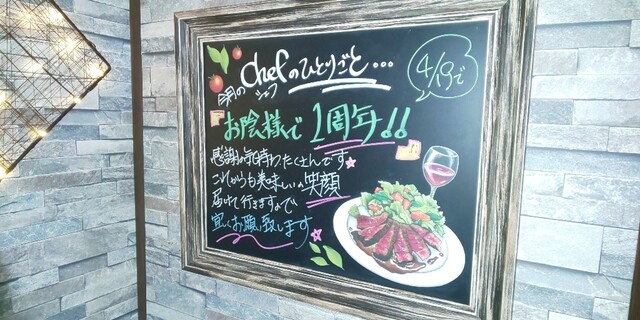 今月の Chefのひとりごと...
シェフ
4/19で
お陰様で1周年!!
感謝の気持ちたくさんです
これからも美味しいの笑顔
届けて行きますので
宜しくお願い致します